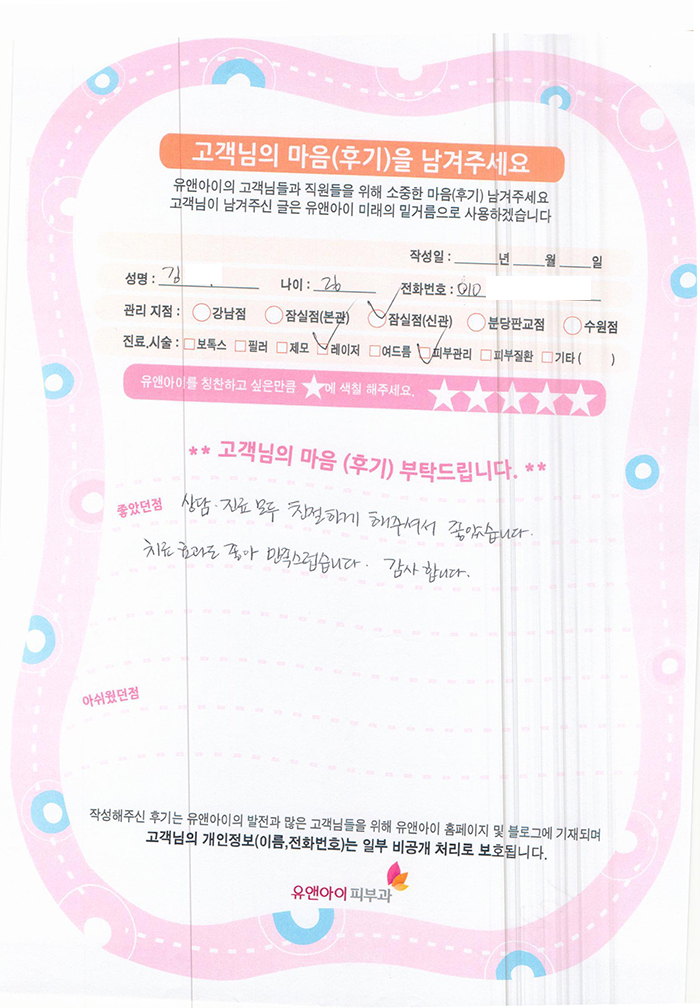 고객님의 마음(후기)을 남겨주세요
유앤아이의 고객님들과 직원들을 위해 소중한 마음(후기) 남겨주세요
고객님이 남겨주신 글은 유앤아이 미래의 밑거름으로 사용하겠습니다
작성일 : ____년 ____월 ____일
성명 : 김 나이 : 26 전화번호 : 010
관리 지점 : ○강남점 ○잠실점(본관) ○잠실점(신관) ○분당판교점 ○수원점
진료.시술 : □보톡스 □필러 □제모 □레이저 □여드름 □피부관리 □피부질환 □기타 ( )
유앤아이를 칭찬하고 싶은만큼 ★에 색칠 해주세요. ★★★★★
** 고객님의 마음 (후기) 부탁드립니다. **
좋았던점 상담·진료 모두 친절하게 해주셔서 좋았습니다.
치료 효과도 좋아 만족스럽습니다. 감사합니다.
아쉬웠던점
작성해주신 후기는 유앤아이의 발전과 많은 고객님들을 위해 유앤아이 홈페이지 및 블로그에 기재되며
고객님의 개인정보(이름,전화번호)는 일부 비공개 처리로 보호됩니다.
유앤아이 피부과